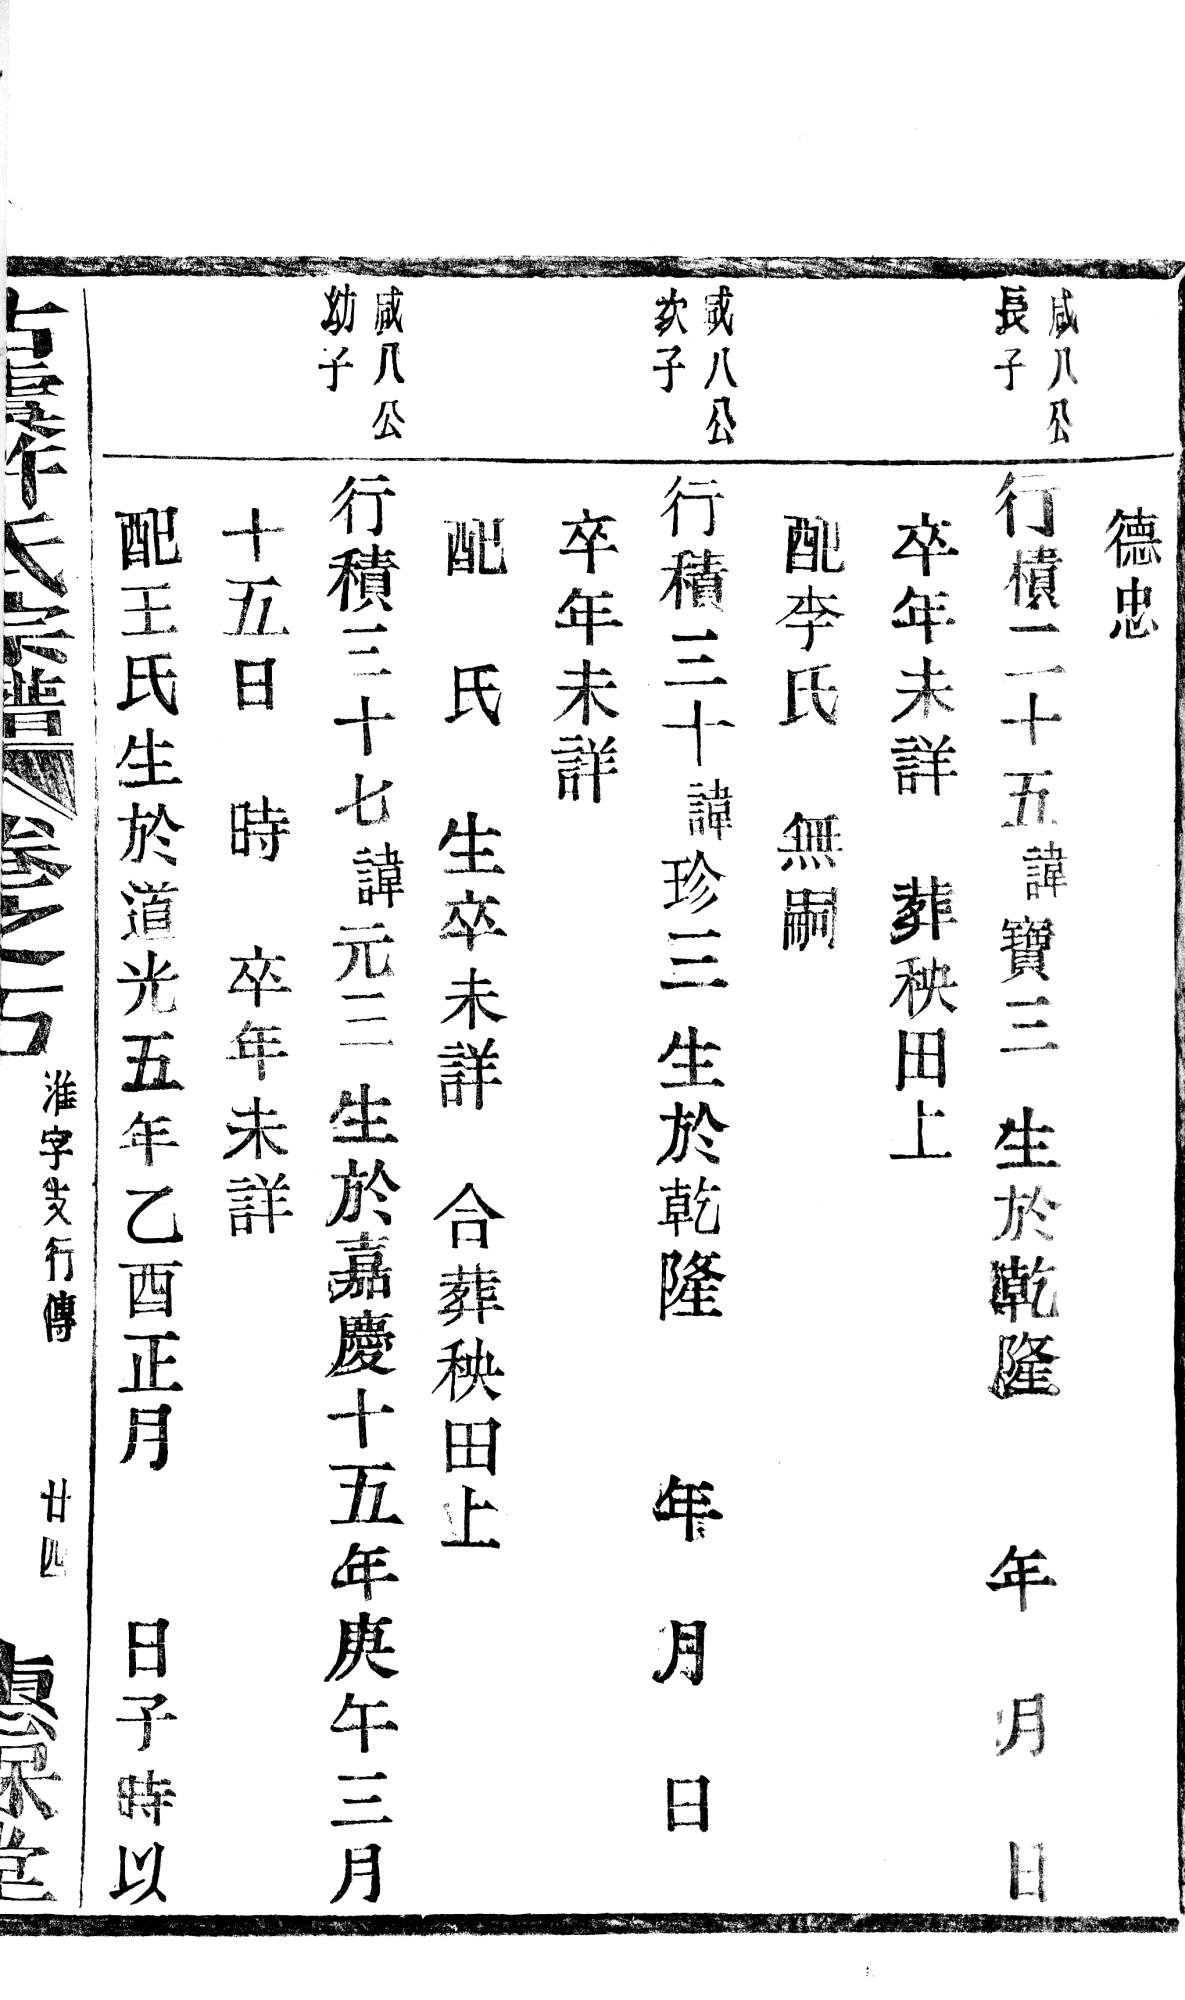 德忠
咸八公
長子
行積二十五諱寶三 生於乾隆 年 月 日
卒年未詳 葬秧田上
配李氏 無嗣
咸八公
次子
行積三十諱珍三 生於乾隆 年 月 日
卒年未詳
配 氏 生卒未詳 合葬秧田上
咸八公
幼子
行積三十七諱元三 生於嘉慶十五年庚午三月
十五日 時 卒年未詳
配王氏生於道光五年乙酉正月 日子時以
古虞許氏宗譜 卷之
淮字支行傳
廿四
堂